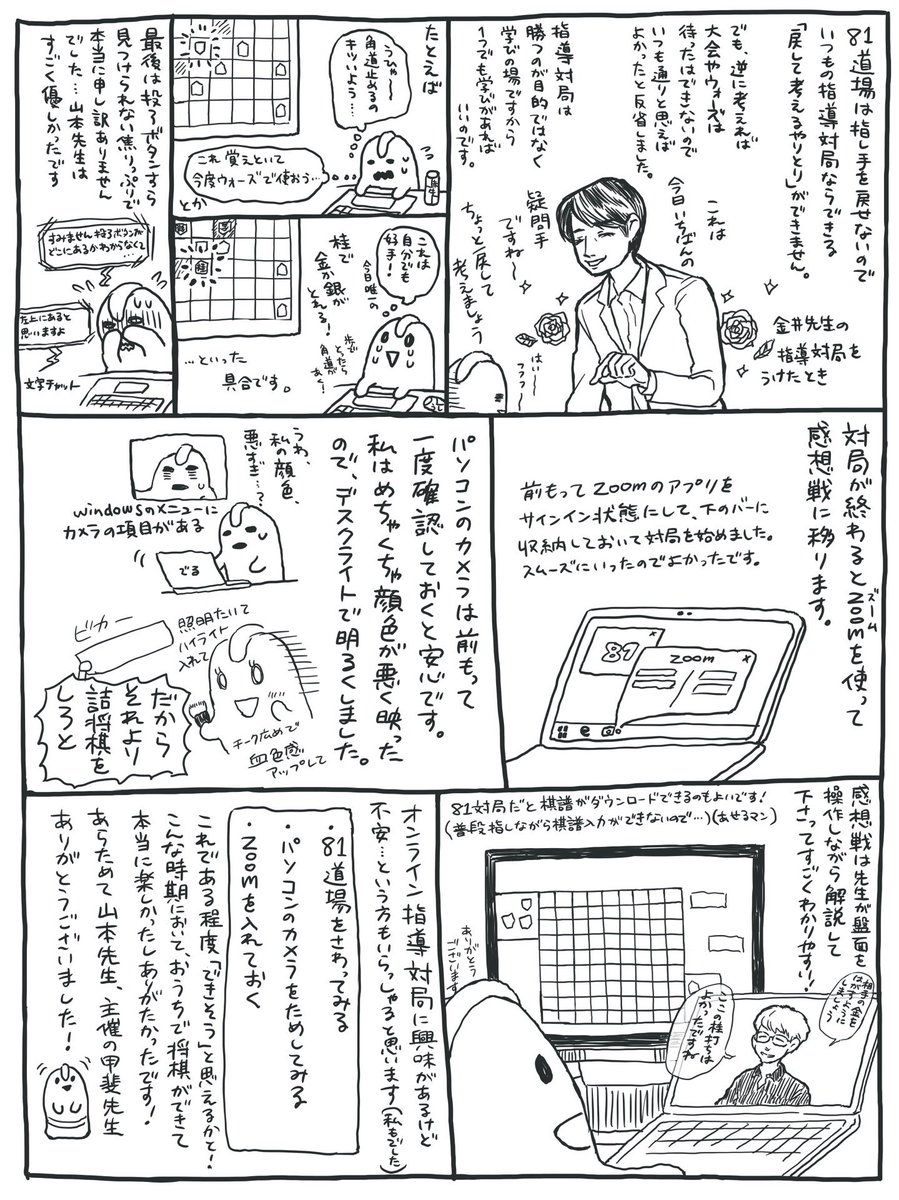 81道場は指し手を戻せないので
いつもの指導対局ならできる
「戻して考えるやりとり」ができません。
でも、逆に考えれば
大会やウォーズは
待ったはできないので
いつも通りと思えば
よかったと反省しました。
指導対局は
勝つのが目的ではなく
学びの場ですから
1つでも学びがあれば
いいのです。
これは
今日いちばんの
疑問手
ですね〜
ちょっと戻して
考えましょう
はい〜
フフフ〜
金井先生の
指導対局を
うけたとき
たとえば
うひゃ〜
角道止めるの
キツいよう…
これ覚えといて
今度ウォーズで使おう…
とか
これは
自分でも
好手!
今日唯一の
桂で
金か銀が
とれる!
歩で
とったら
角道が
あく!
…といった
具合です。
最後は投了ボタンすら
見つけられない焦りっぷりで
本当に申し訳ありません
でした…山本先生は
すごく優しかったです
すみません投了ボタンが
どこにあるかわからなくて…
左上にあると
思いますよ
文字チャット
対局が終わるとzoomを使って
ズーム
感想戦に移ります。
前もってzoomのアプリを
サインイン状態にして、下のバーに
収納しておいて対局を始めました。
スムーズにいったのでよかったです。
81
zoom
パソコンのカメラは前もって
一度確認しておくと安心です。
私はめちゃくちゃ顔色が悪く映った
ので、デスクライトで明るくしました。
うわ、
私の顔色、
悪すぎ…?
windowsのメニューに
カメラの項目がある
でる
ピカー
照明たいて
ハイライト
入れて
チーク広めで
血色感
アップして
だから
それより
詰将棋を
しろと
感想戦は先生が盤面を
操作しながら解説して
下さってすごくわかりやすい!
81対局だと棋譜がダウンロードできるのもよいです!
(普段指しながら棋譜入力ができないので…)(あせるマン)
ありがとう
ございます
相手の金を
はがすように
しましょう
ここの桂打ちは
よかったですね
オンライン指導対局に興味があるけど
不安…という方もいらっしゃると思います(私もでした)
・81道場をさわってみる
・パソコンのカメラをためしてみる
・zoomを入れておく
これである程度「できそう」と思えるかと!
こんな時期において、おうちで将棋ができて
本当に楽しかったしありがたかったです!
あらためて山本先生、主催の甲斐先生
ありがとうございました!